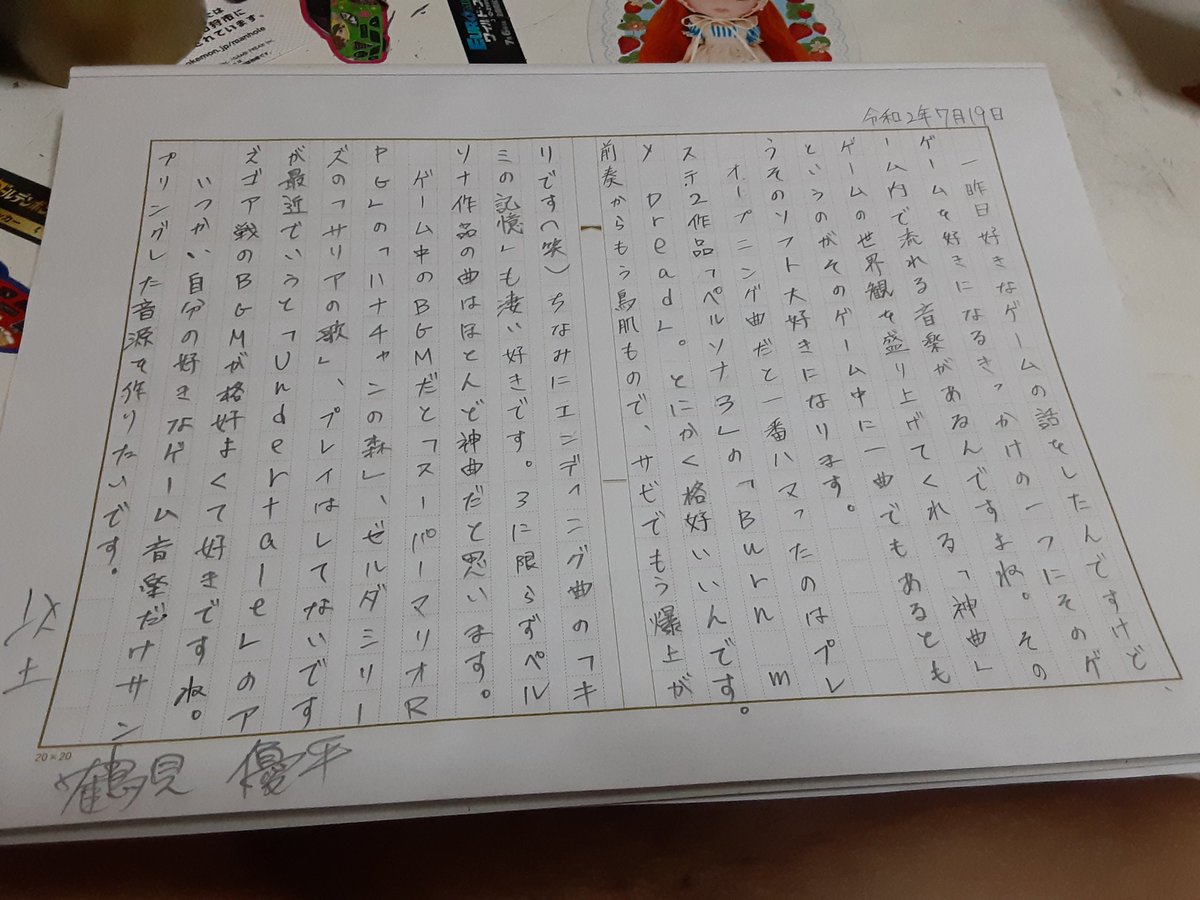 には
狩市に
されています。
okemon.jp/manhole
令和2年7月19日
一昨日好きなゲームの話をしたんですけど、
ゲームを好きになるきっかけの一つにそのゲ
ーム内で流れる音楽があるんですよね。その
ゲームの世界観を盛り上げてくれる「神曲」
というのがそのゲーム中に一曲でもあるとも
うそのソフト大好きになります。
オープニング曲だと一番ハマったのはプレ
ステ2作品「ペルソナ3」の「Burn m
y Dread」。とにかく格好いいんです。
前奏からもう鳥肌もので、サビでもう爆上が
りです(笑)ちなみにエンディング曲の「キ
ミの記憶」も凄い好きです。3に限らずペル
ソナ作品の曲はほとんど神曲だと思います。
ゲーム中のBGMだと「スーパーマリオR
PG」の「ハナチャンの森」、ゼルダシリー
ズの「サリアの歌」、プレイはしてないです
が最近でいうと「Undertale」のア
ズゴア戦のBGMが格好よくて好きですね。
いつかい自分の好きなゲーム音楽だけサン
プリングした音源を作りたいです。
以上
20×20
鶴見 優平